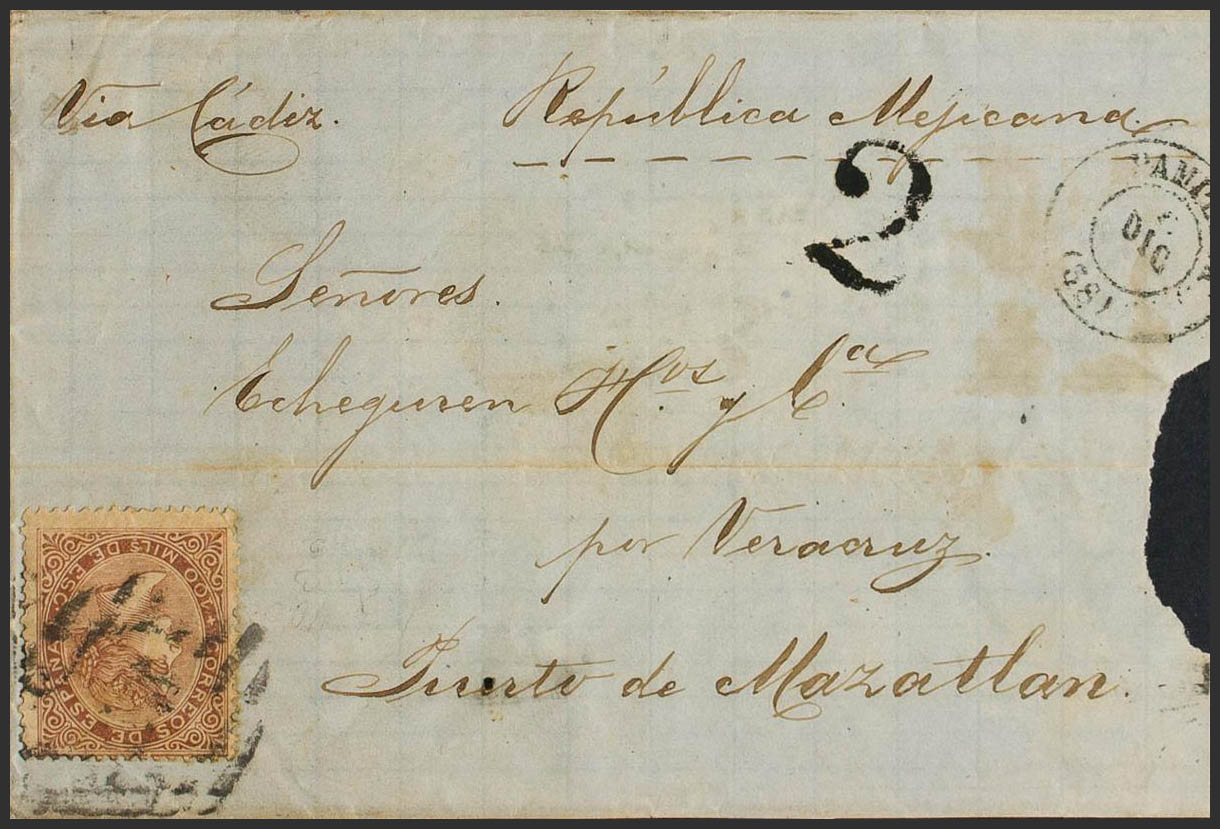 Via Cádiz. República Mejicana.
2
DIC
(68)
Señores.
Echeguren H.os y C.a
por Veracruz.
Puerto de Mazatlan.
CORREOS DE ESPAÑA
400 MILS DE ESC.